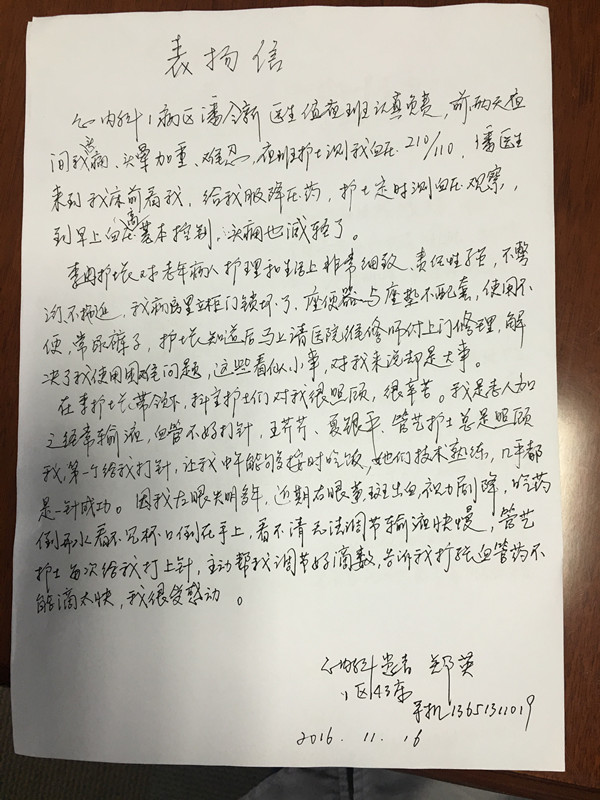 表扬信
心内科1病区潘令新医生值夜班认真负责，前两天夜
间我头痛、头晕加重、难忍，夜班护士测我血压210/110，潘医生
来到我床前看我，给我服降压药，护士定时测血压观察，
到早上高血压基本控制，头痛也减轻了。
李丹护士长对老年病人护理和生活上非常细致、责任性强，不嫌
我病房里立柜门锁坏了，座便器与座垫不配套，使用不
便，常尿裤子，护士长知道后马上请医院维修师付上门修理，解
决了我使用困难问题，这些看似小事，对我来说却是大事。
在李护士长带领下，科室护士们对我很照顾，很辛苦。我是老人加
之经常输液，血管不好打针，王芹芹、夏银平、管艺护士总是照顾
我，第一个给我打针，让我中午能够按时吃饭，她们技术熟练，几乎都
是一针成功。因我左眼失明多年，近期右眼黄斑出血，视力剧降，吃药
倒开水看不见杯口倒在手上，看不清无法调节输液快慢，管艺
护士每次给我打上针，主动帮我调节好滴数，告诉我扩张血管药不
能滴太快，我很受感动。
心内科患者 郑英
1区43床
手机13651311019
2016.11.16